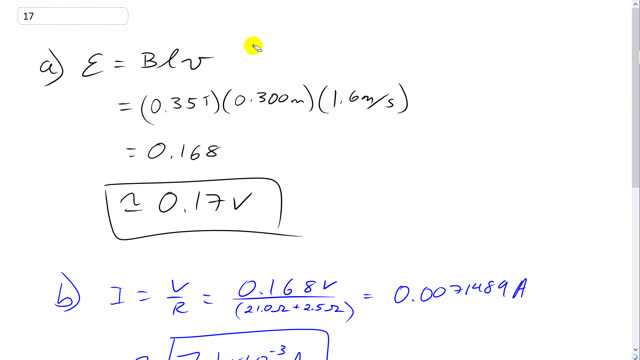 17
a) ℰ = Blv
= (0.35T)(0.300m)(1.6m/s)
= 0.168
≃ 0.17V
b) I = V/R = 0.168V/(21.0Ω+2.5Ω) = 0.0071489A